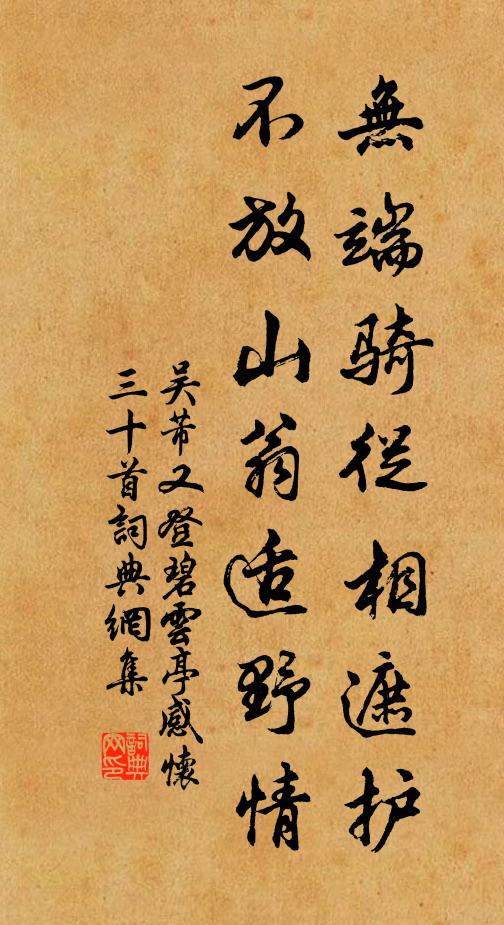 無端騎從相遮护
不放山翁适野情
吴芾又登碧雲亭感懷
三十首詞典網集
詞典
网印